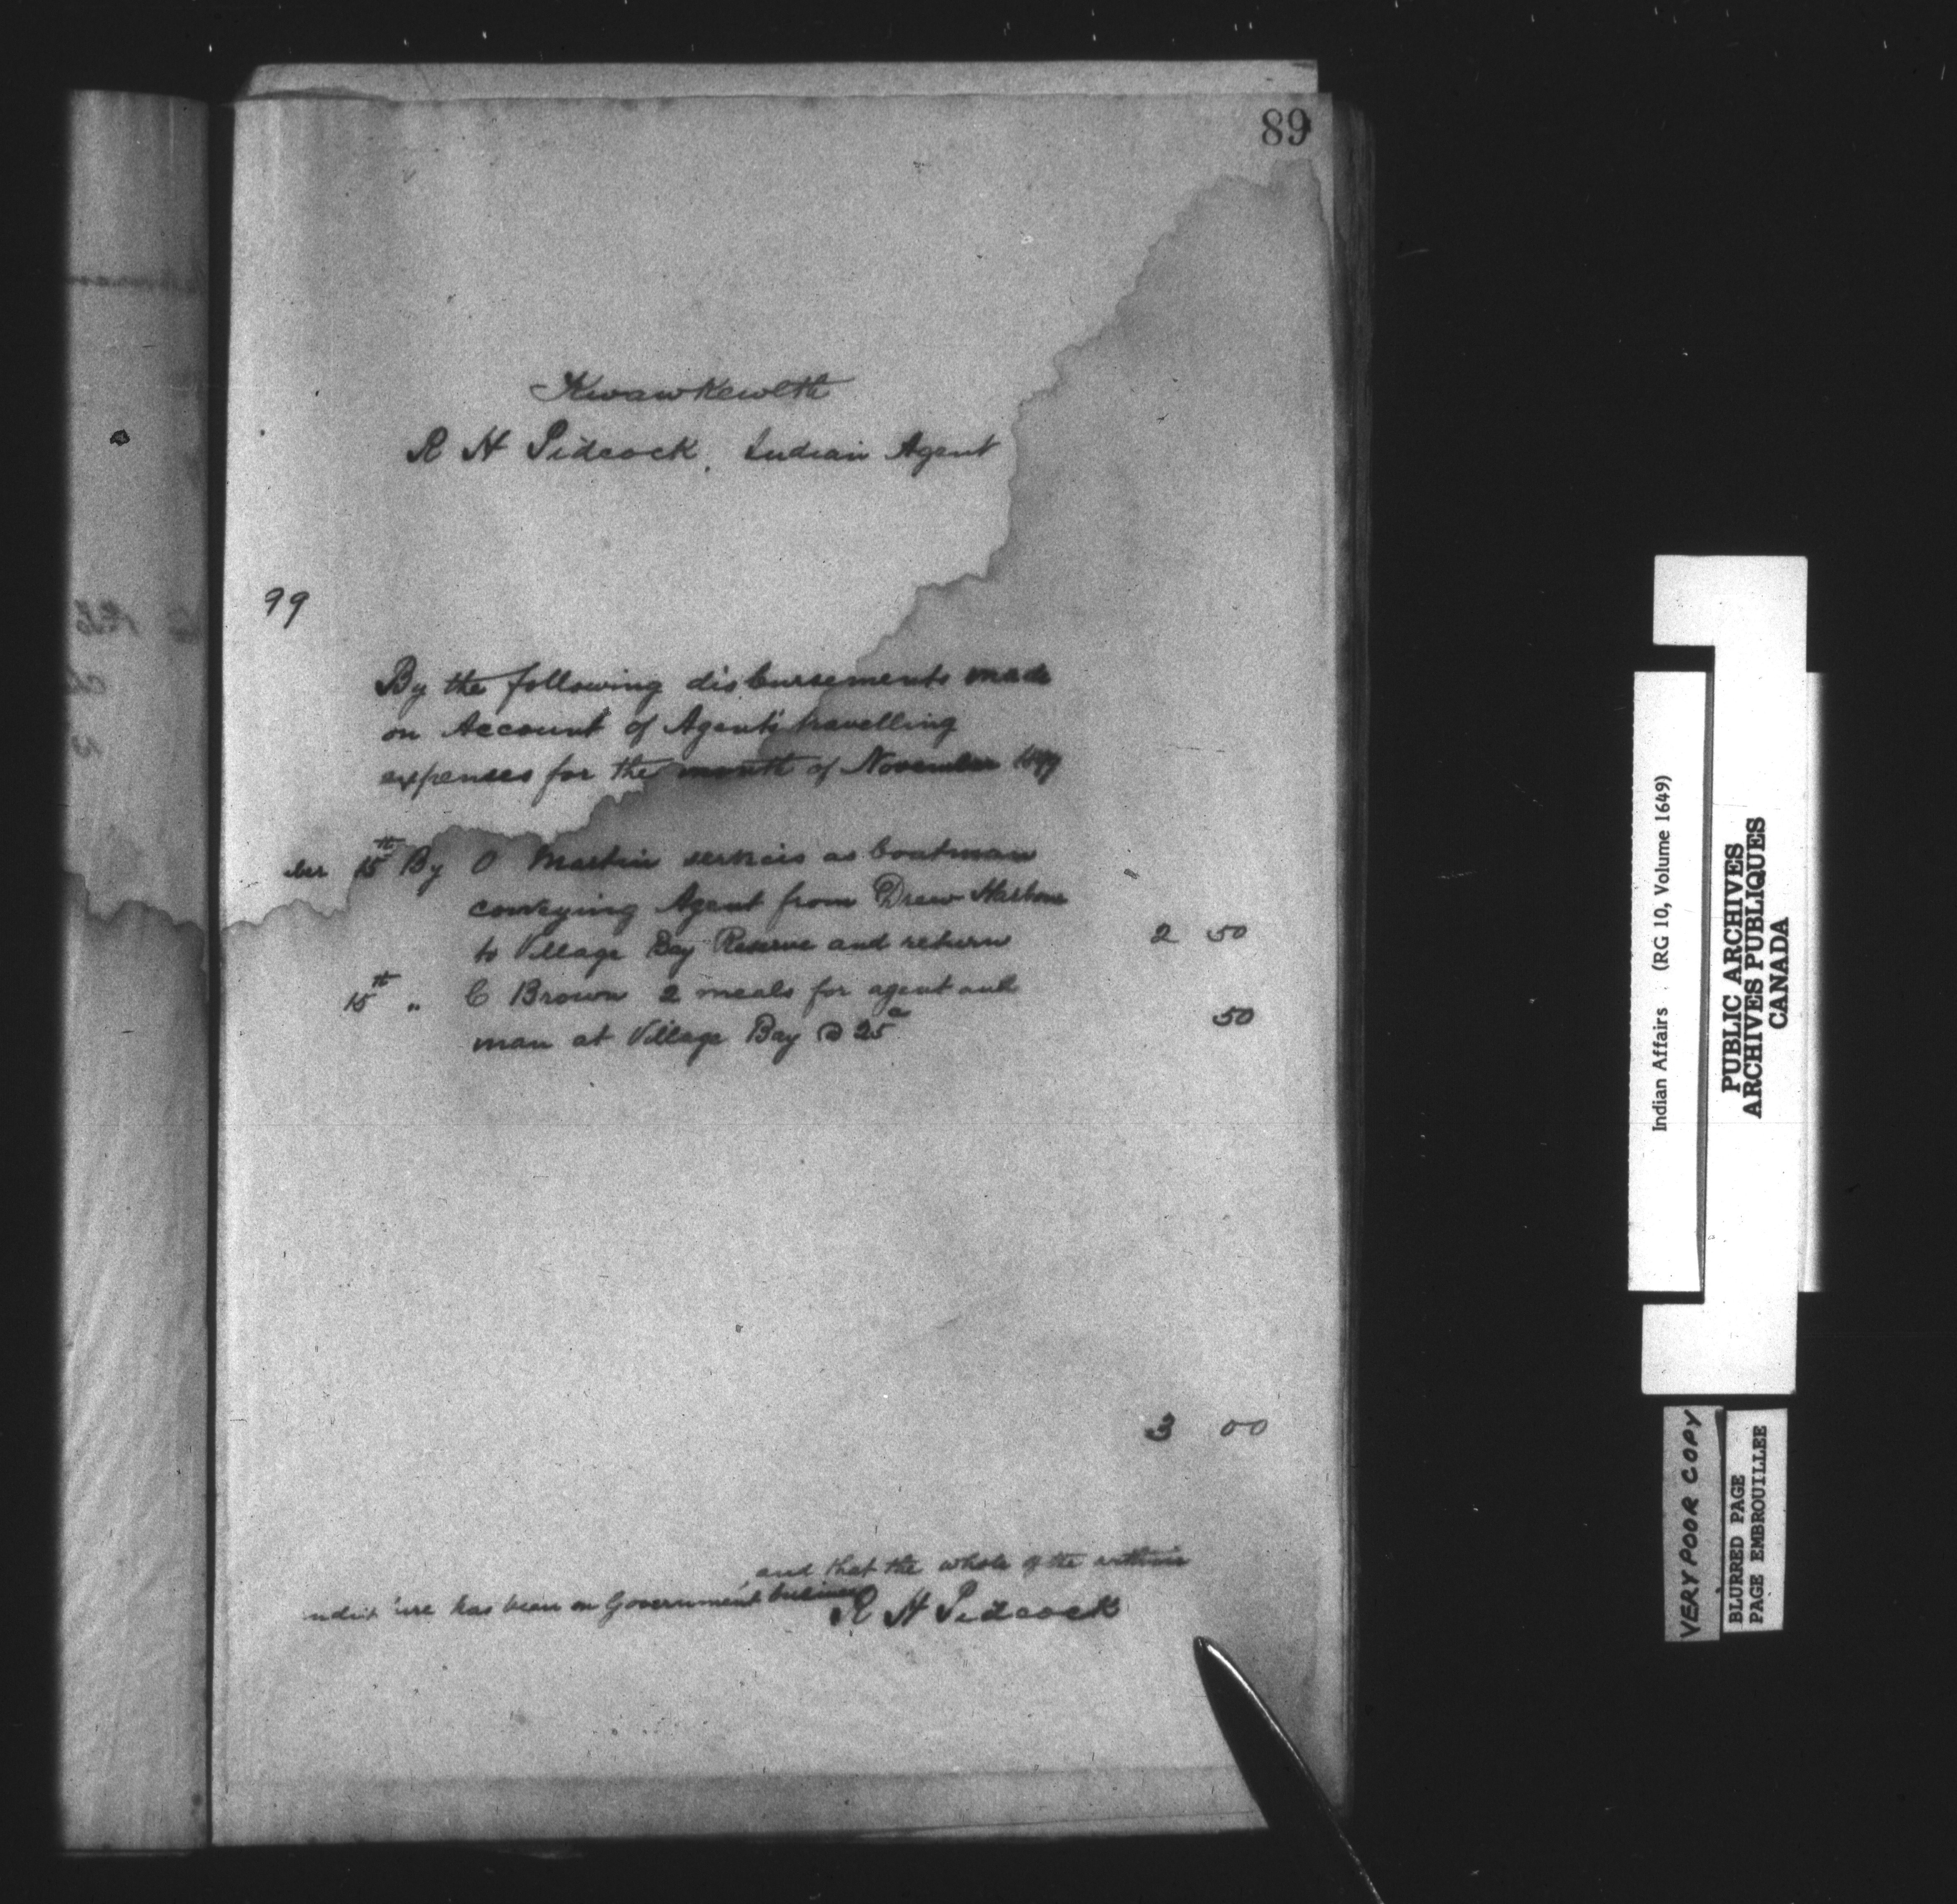 89
Kwawkewlth
R H Pidcock, Indian Agent
99
By the following disbursements made
on Account of Agent's travelling
expenses for the month of November 1899
ber 15th By O Martin services as boatman
conveying Agent from Drew Harbour
to Village Bay Reserve and return 2 50
15th " C Brown 2 meals for agent and
man at Village Bay @ 25c 50
3 00
and that the whole of the within
ure has been on Government business
R H Pidcock
Indian Affairs (RG 10, Volume 1649)
PUBLIC ARCHIVES
ARCHIVES PUBLIQUES
CANADA
VERY POOR COPY
BLURRED PAGE
PAGE EMBROUILLEE